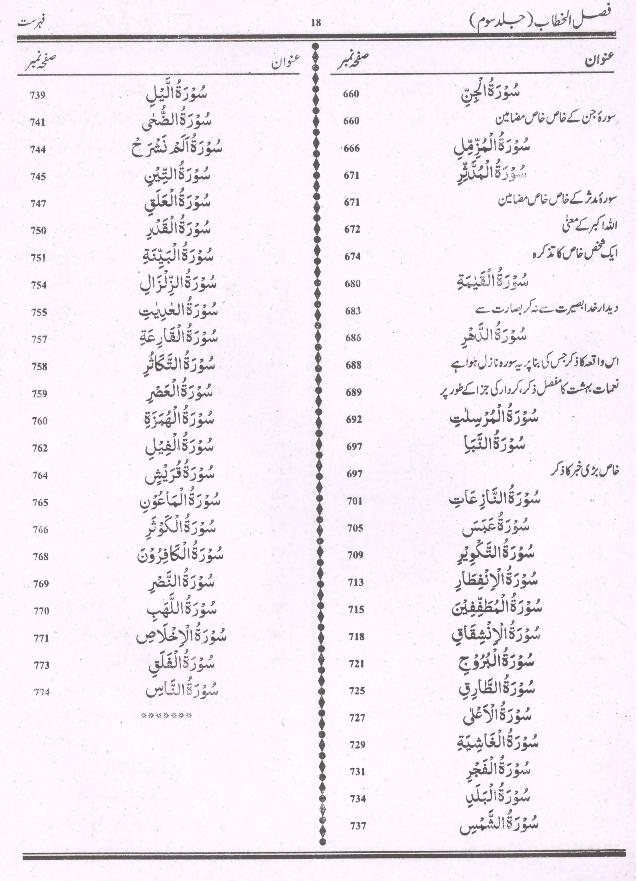 فصل الخطاب (جلد سوم) 18 فہرست
عنوان صفحہ نمبر
سُوْرَةُ الْجِنِّ 660
سورۂ جن کے خاص خاص مضامین 660
سُوْرَةُ الْمُزَّمِّلِ 666
سُوْرَةُ الْمُدَّثِّرِ 671
سورۂ مدثر کے خاص خاص مضامین 671
اللہ اکبر کے معنیٰ 672
ایک شخص خاص کا تذکرہ 674
سُوْرَةُ الْقِيٰمَةِ 680
دیدار خدا بصیرت سے نہ کر بصارت سے 683
سُوْرَةُ الدَّهْرِ 686
اس واقعہ کا ذکر جس کی بنا پر یہ سورہ نازل ہوا ہے 688
نعمات بہشت کا مفصل ذکر، کردار کی جزا کے طور پر 689
سُوْرَةُ الْمُرْسَلٰتِ 692
سُوْرَةُ النَّبَاِ 697
خاص بڑی خبر کا ذکر 697
سُوْرَةُ النَّازِعَاتِ 701
سُوْرَةُ عَبَسَ 705
سُوْرَةُ التَّكْوِيْرِ 709
سُوْرَةُ الْاِنْفِطَارِ 713
سُوْرَةُ الْمُطَفِّفِيْنَ 715
سُوْرَةُ الْاِنْشِقَاقِ 718
سُوْرَةُ الْبُرُوْجِ 721
سُوْرَةُ الطَّارِقِ 725
سُوْرَةُ الْاَعْلٰى 727
سُوْرَةُ الْغَاشِيَةِ 729
سُوْرَةُ الْفَجْرِ 731
سُوْرَةُ الْبَلَدِ 734
سُوْرَةُ الشَّمْسِ 737
عنوان صفحہ نمبر
سُوْرَةُ الَّيْلِ 739
سُوْرَةُ الضُّحٰى 741
سُوْرَةُ اَلَمْ نَشْرَحْ 744
سُوْرَةُ التِّيْنِ 745
سُوْرَةُ الْعَلَقِ 747
سُوْرَةُ الْقَدْرِ 750
سُوْرَةُ الْبَيِّنَةِ 751
سُوْرَةُ الزِّلْزَالِ 754
سُوْرَةُ الْعٰدِيٰتِ 755
سُوْرَةُ الْقَارِعَةِ 757
سُوْرَةُ التَّكَاثُرِ 758
سُوْرَةُ الْعَصْرِ 759
سُوْرَةُ الْهُمَزَةِ 760
سُوْرَةُ الْفِيْلِ 762
سُوْرَةُ قُرَيْشٍ 764
سُوْرَةُ الْمَاعُوْنِ 765
سُوْرَةُ الْكَوْثَرِ 766
سُوْرَةُ الْكَافِرُوْنَ 768
سُوْرَةُ النَّصْرِ 769
سُوْرَةُ اللَّهَبِ 770
سُوْرَةُ الْاِخْلَاصِ 771
سُوْرَةُ الْفَلَقِ 773
سُوْرَةُ النَّاسِ 774
*******